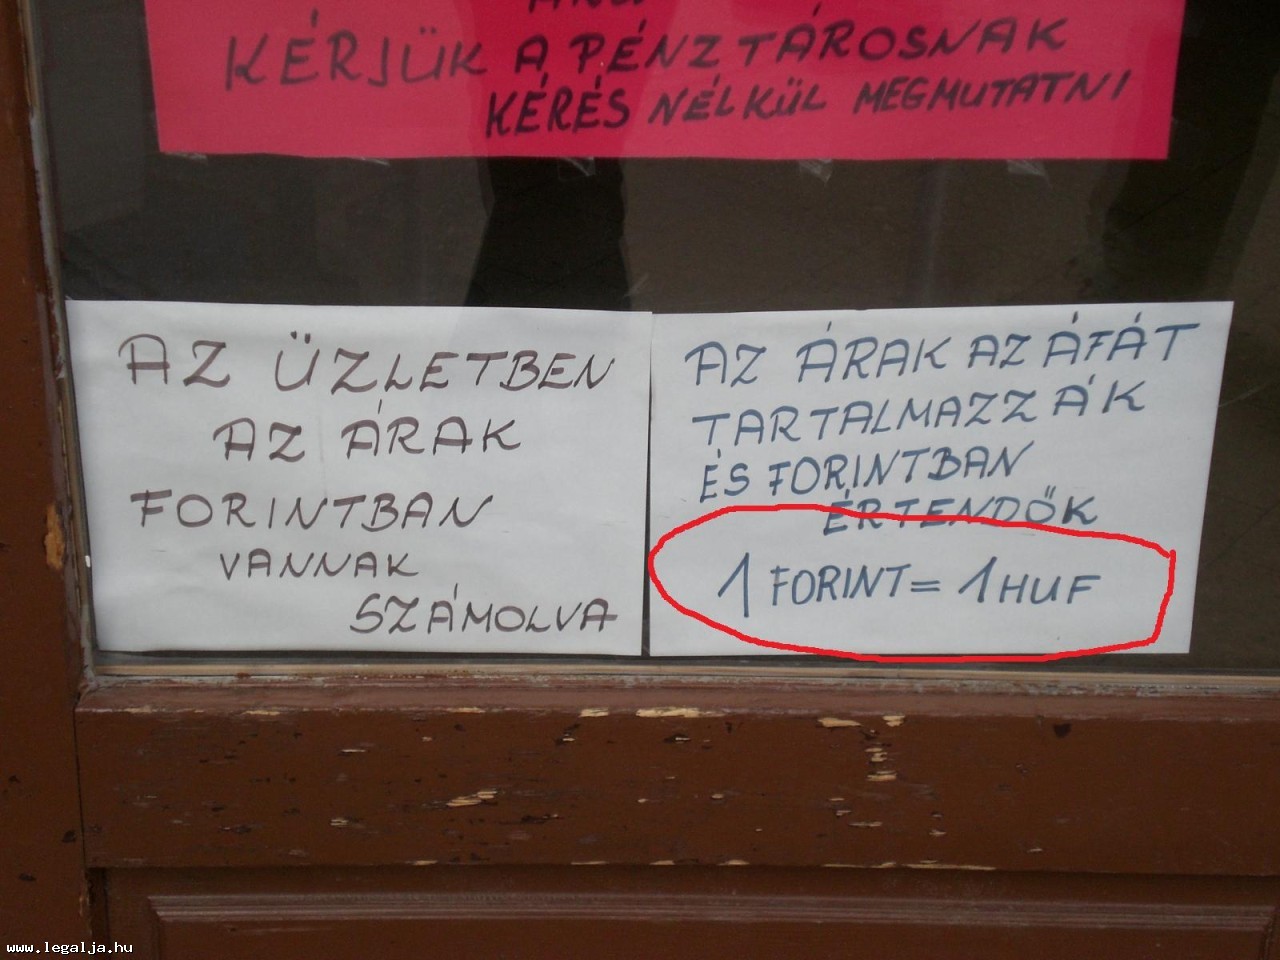 KÉRJÜK A PÉNZTÁROSNAK
KÉRÉS NÉLKÜL MEGMUTATNI
AZ ÜZLETBEN
AZ ÁRAK
FORINTBAN
VANNAK
SZÁMOLVA
AZ ÁRAK AZ ÁFÁT
TARTALMAZZÁK
ÉS FORINTBAN
ÉRTENDŐK
1 FORINT = 1 HUF
www.legalja.hu